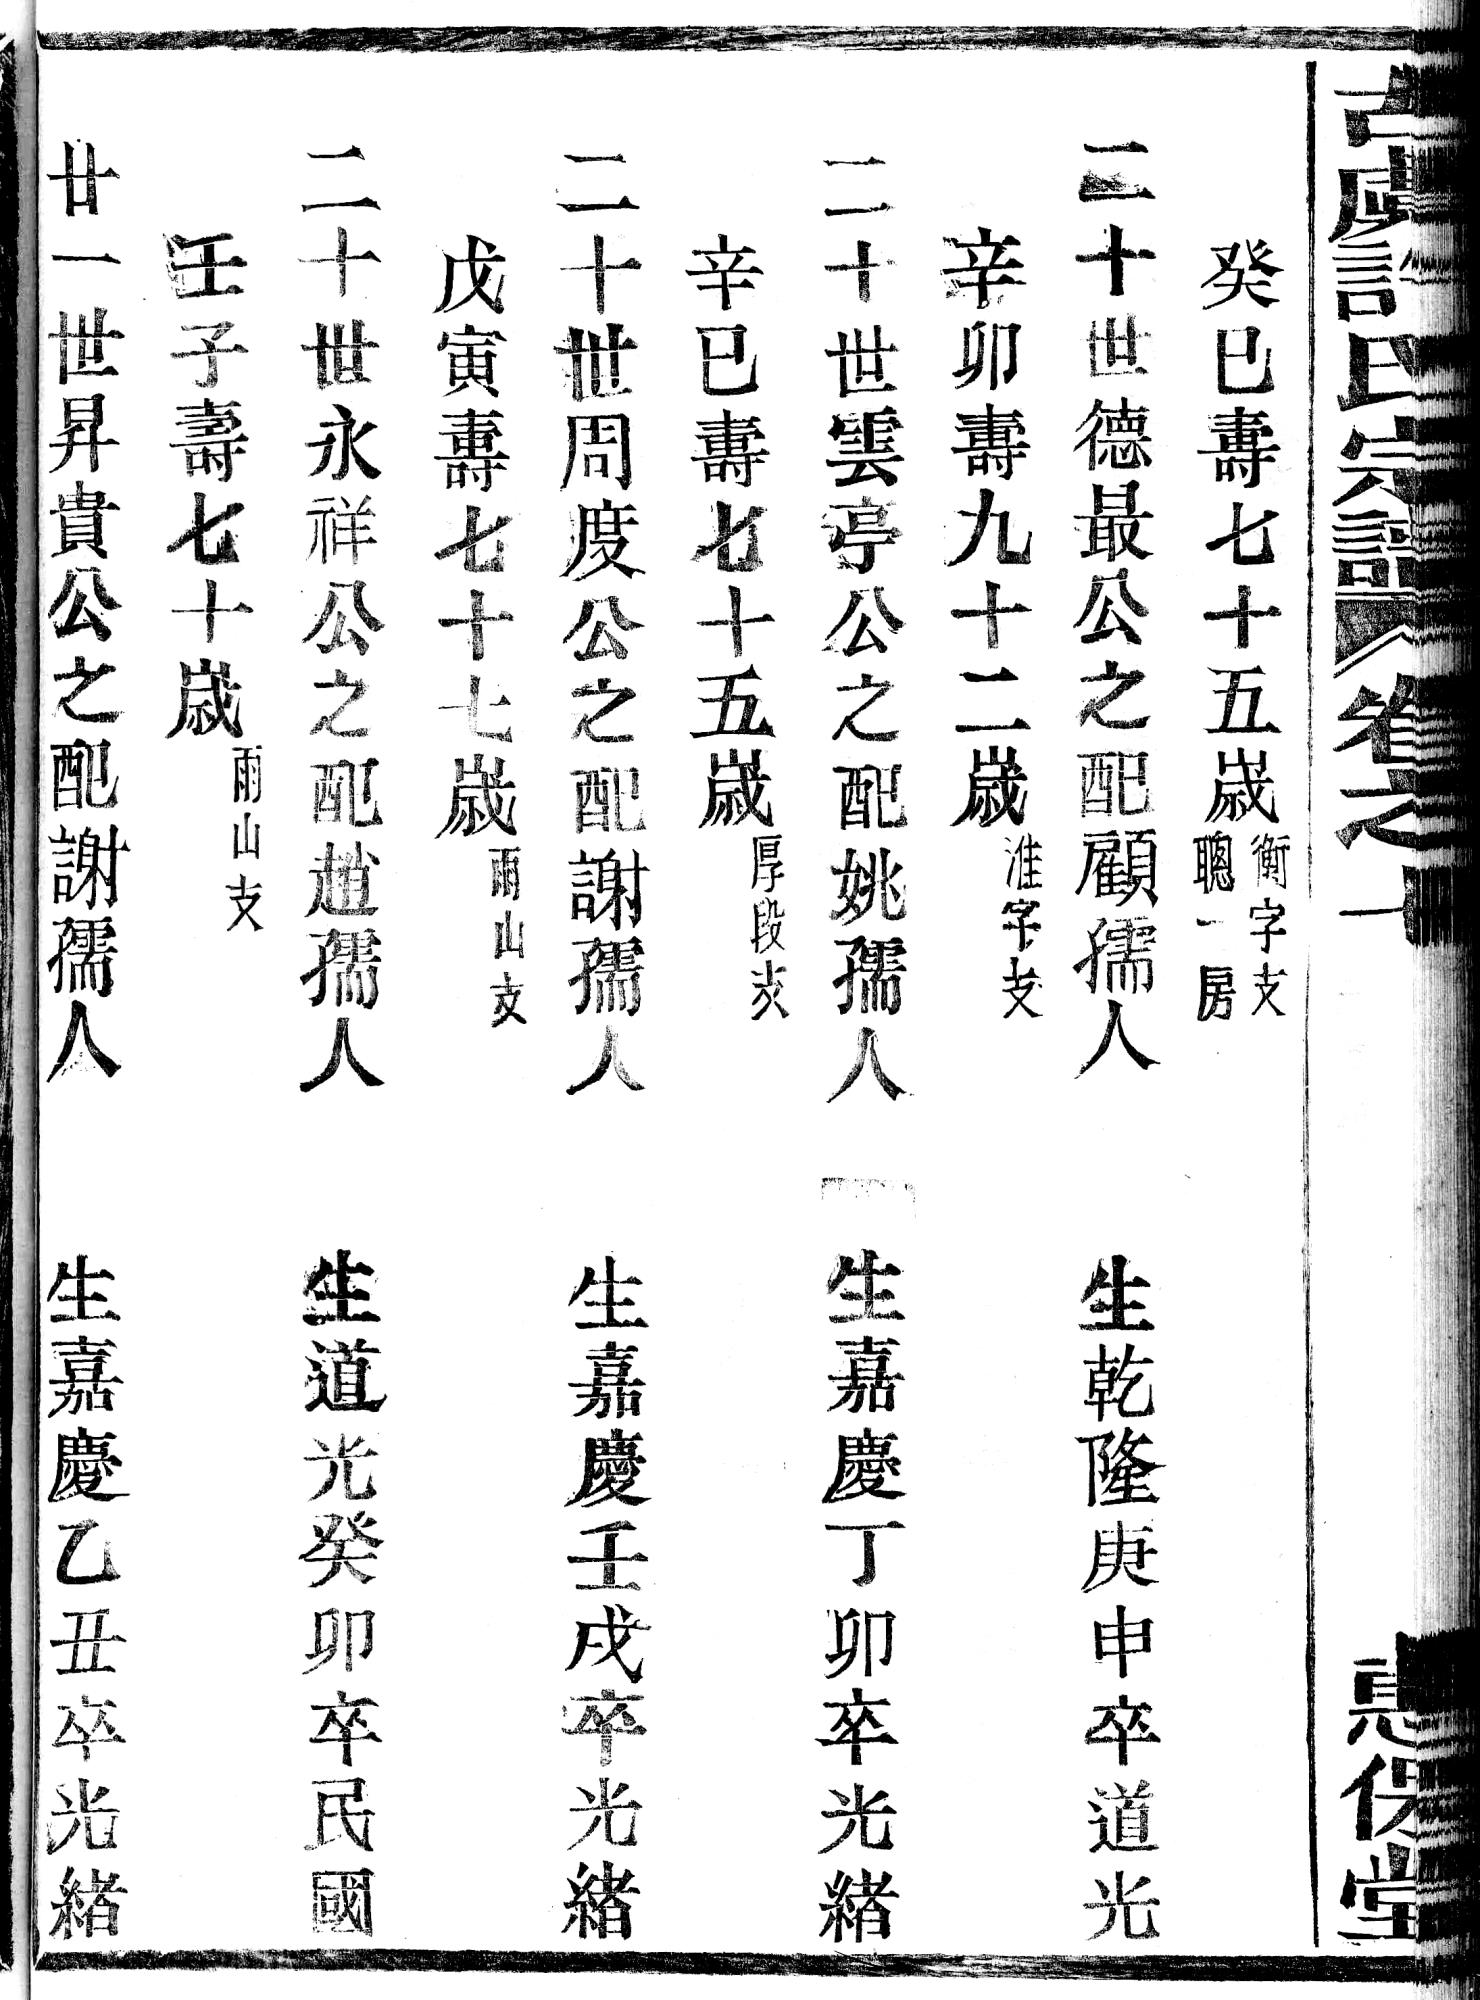 古虞許氏宗譜 卷之十 惠保堂
癸巳壽七十五歲 衡字支 聰一房
二十世德最公之配顧孺人 生乾隆庚申卒道光
辛卯壽九十二歲 淮字支
二十世雲亭公之配姚孺人 生嘉慶丁卯卒光緒
辛巳壽七十五歲 厚段支
二十世周度公之配謝孺人 生嘉慶壬戌卒光緒
戊寅壽七十七歲 雨山支
二十世永祥公之配趙孺人 生道光癸卯卒民國
壬子壽七十歲 雨山支
廿一世昇貴公之配謝孺人 生嘉慶乙丑卒光緒